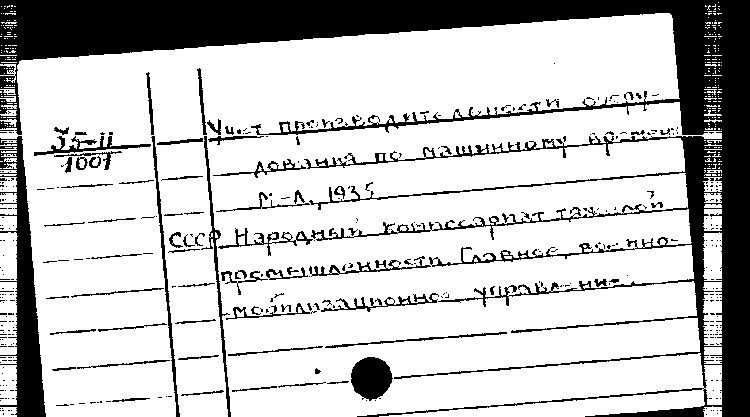 Учет производительности обору-
J5-II
1001
дования по машинному времени
М.-Л., 1935
СССР Народный комиссариат тяжелой
промышленности. Главное военно-
мобилизационное управление.